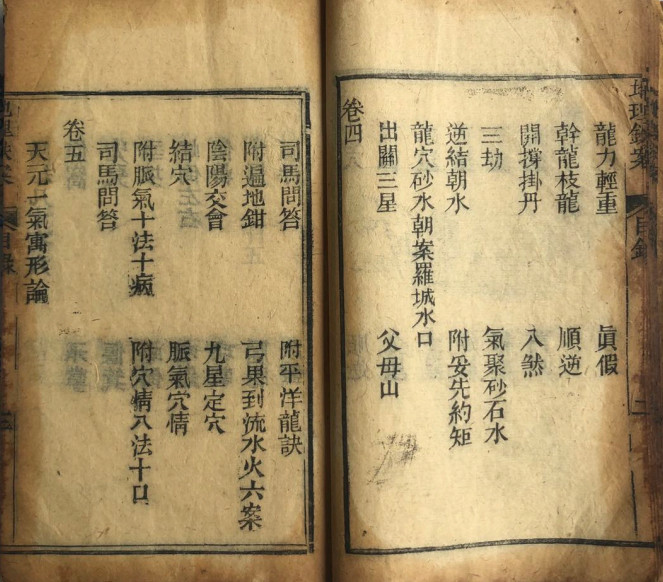 目錄
二
龍力輕重　眞假
幹龍枝龍　順逆
開撐掛丹　八煞
三劫　氣聚砂石水
逆結朝水　附妥先約矩
龍穴砂水朝案羅城水口
出關三星　父母山
卷四
司馬問答　附平洋龍訣
附遍地鉗　弓果到流水火六案
陰陽交會　九星定穴
結穴　脈氣穴情
附脈氣十法十病　附穴情八法十口
司馬問答
卷五
天元一氣寓形論